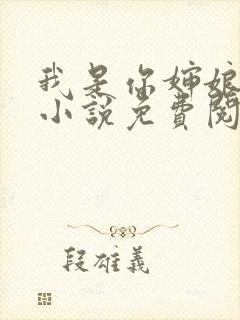 我是你婶娘
小說免費閱
段雄義